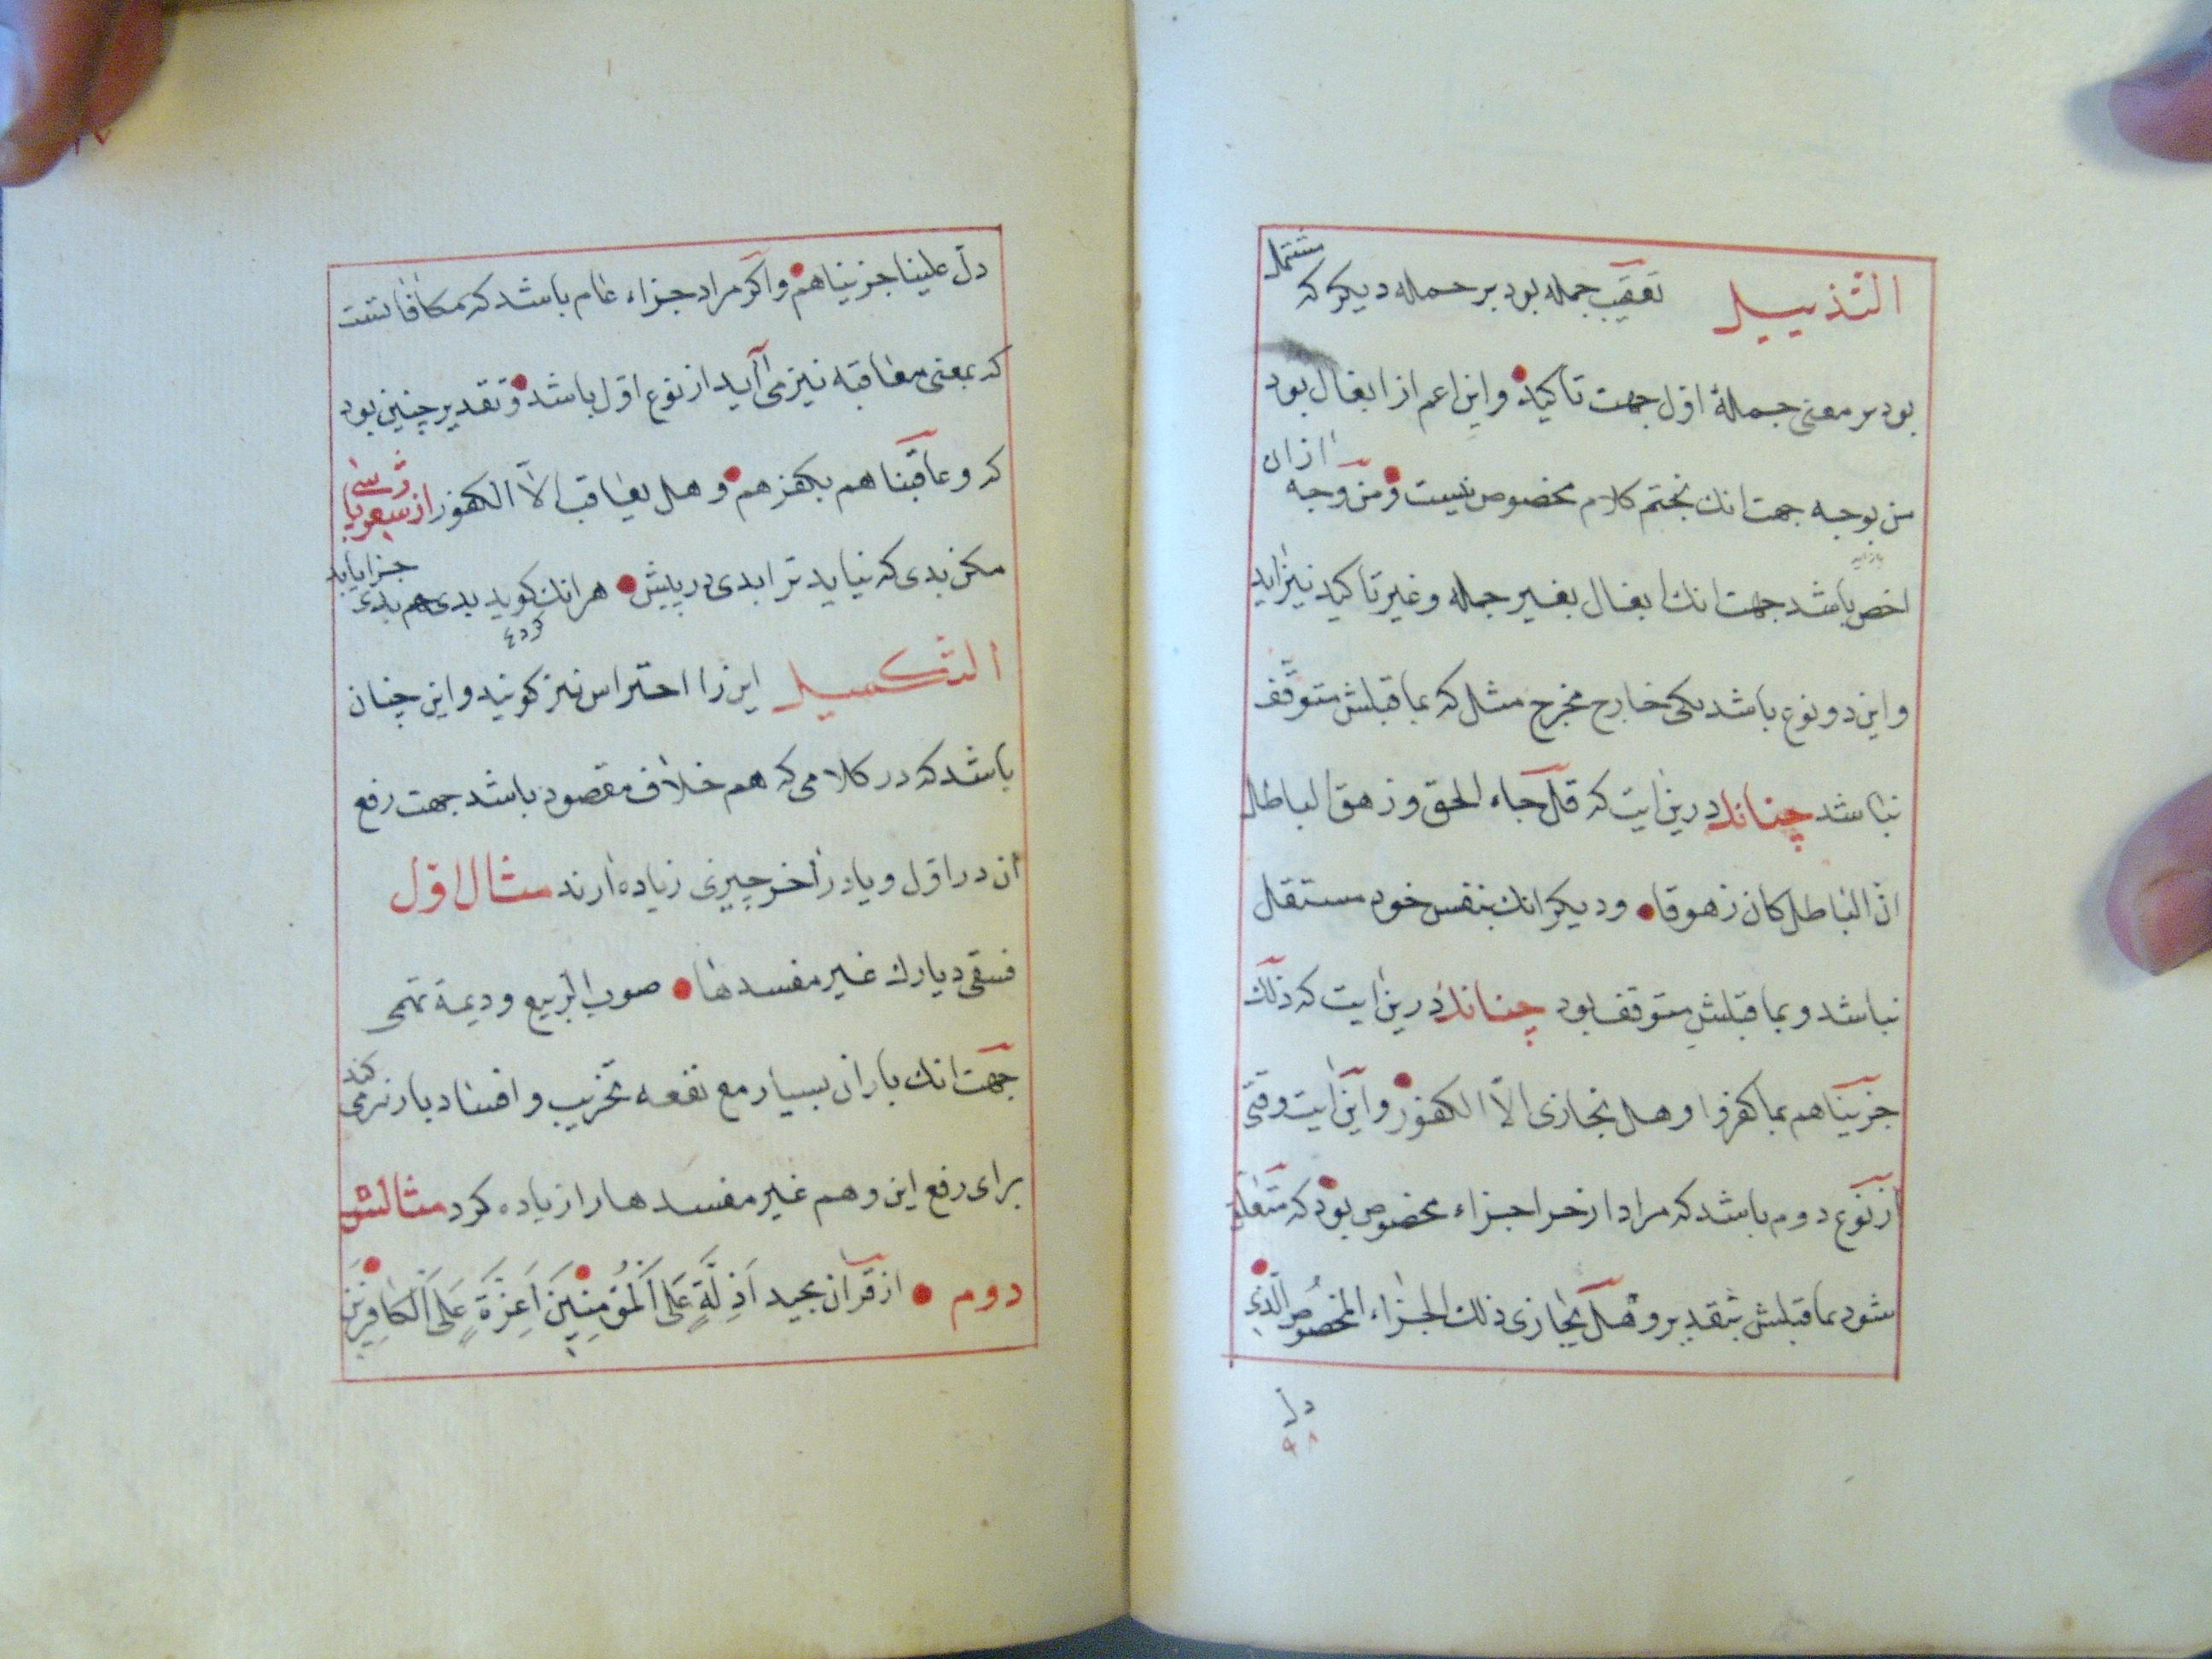 التذييل تعقيب جمله بود بر جمله ديكر كه مشتمل
بود بر معنى جملۀ اول جهت تأكيد واين اعم از ايغال بود
من بوجه جهت انك بختم كلام مخصوص نيست ومن وجه ازان
اخص باشد جهت انك ايغال بغير جمله وغير تأكيد نيز ايد
واين دو نوع باشد يكى خارج مخرج مثل كه بما قبلش متوقف
نباشد چنانك درين ايت كه قل جاء الحق وزهق الباطل
ان الباطل كان زهوقا وديكر انك بنفس خود مستقل
نباشد وبما قبلش متوقف بود چنانك درين ايت كه ذلك
جزيناهم بما كفروا وهل نجازى الا الكفور واين ايت وقتى
از نوع دوم باشد كه مراد از جزا جزاء مخصوص بود كه متعلق
شود بما قبلش بتقدير وهل يجازى ذلك الجزاء المخصوص الذى
دل
٩٨
دل علينا جزيناهم واكر مراد جزاء عام باشد كه مكافاتست
كه بمعنى معاقبه نيز مى آيد از نوع اول باشد وتقدير چنين بود
كه وعاقبناهم بكفرهم وهل يعاقب الا الكفور از شعر پارسى
مكن بدى كه نيايد ترا بدى در پيش هرانك كويد بدى هم بدى جزا يابد
كرد
التكميل اين را احتراس نيز كويند واين چنان
باشد كه در كلامى كه هم خلاف مقصود باشد جهت رفع
ان در اول ويا در آخر چيزى زياده ارند مثال اول
فسقى ديارك غير مفسدها صوب الربيع وديمة تهمى
جهت انك باران بسيار مع نفعه تخريب وافساد ديار نيز مى كند
براى رفع اين وهم غير مفسدها را زياده كرد مثالش
دوم از قرآن مجيد اَذِلَّةٍ عَلَى اَلْمُؤمِنِينَ اَعِزَّةٍ عَلَى اَلْكافِرِينَ